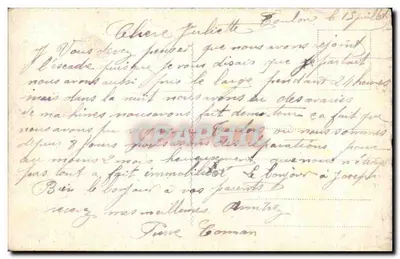 Toulon le 15 juillet
Chère Juliette
Vous devez penser que nous avons rejoint
l'escadre puisque je vous disais que je partait
nous avons aussi pris le large pendant 24 heures
mais dans la nuit nous avons eu des avaries
de machines nous avons fait demi tour ça fait que
nous avons Toulon ou nous sommes
depuis 8 jours pour réparations pour
au moins 2 mois heureusement que nous n'
pas tout a fait immobilisé le bonjour à Joseph
Bien le bonjour à vos parents
recevez mes meilleures Amitiés
Pierre